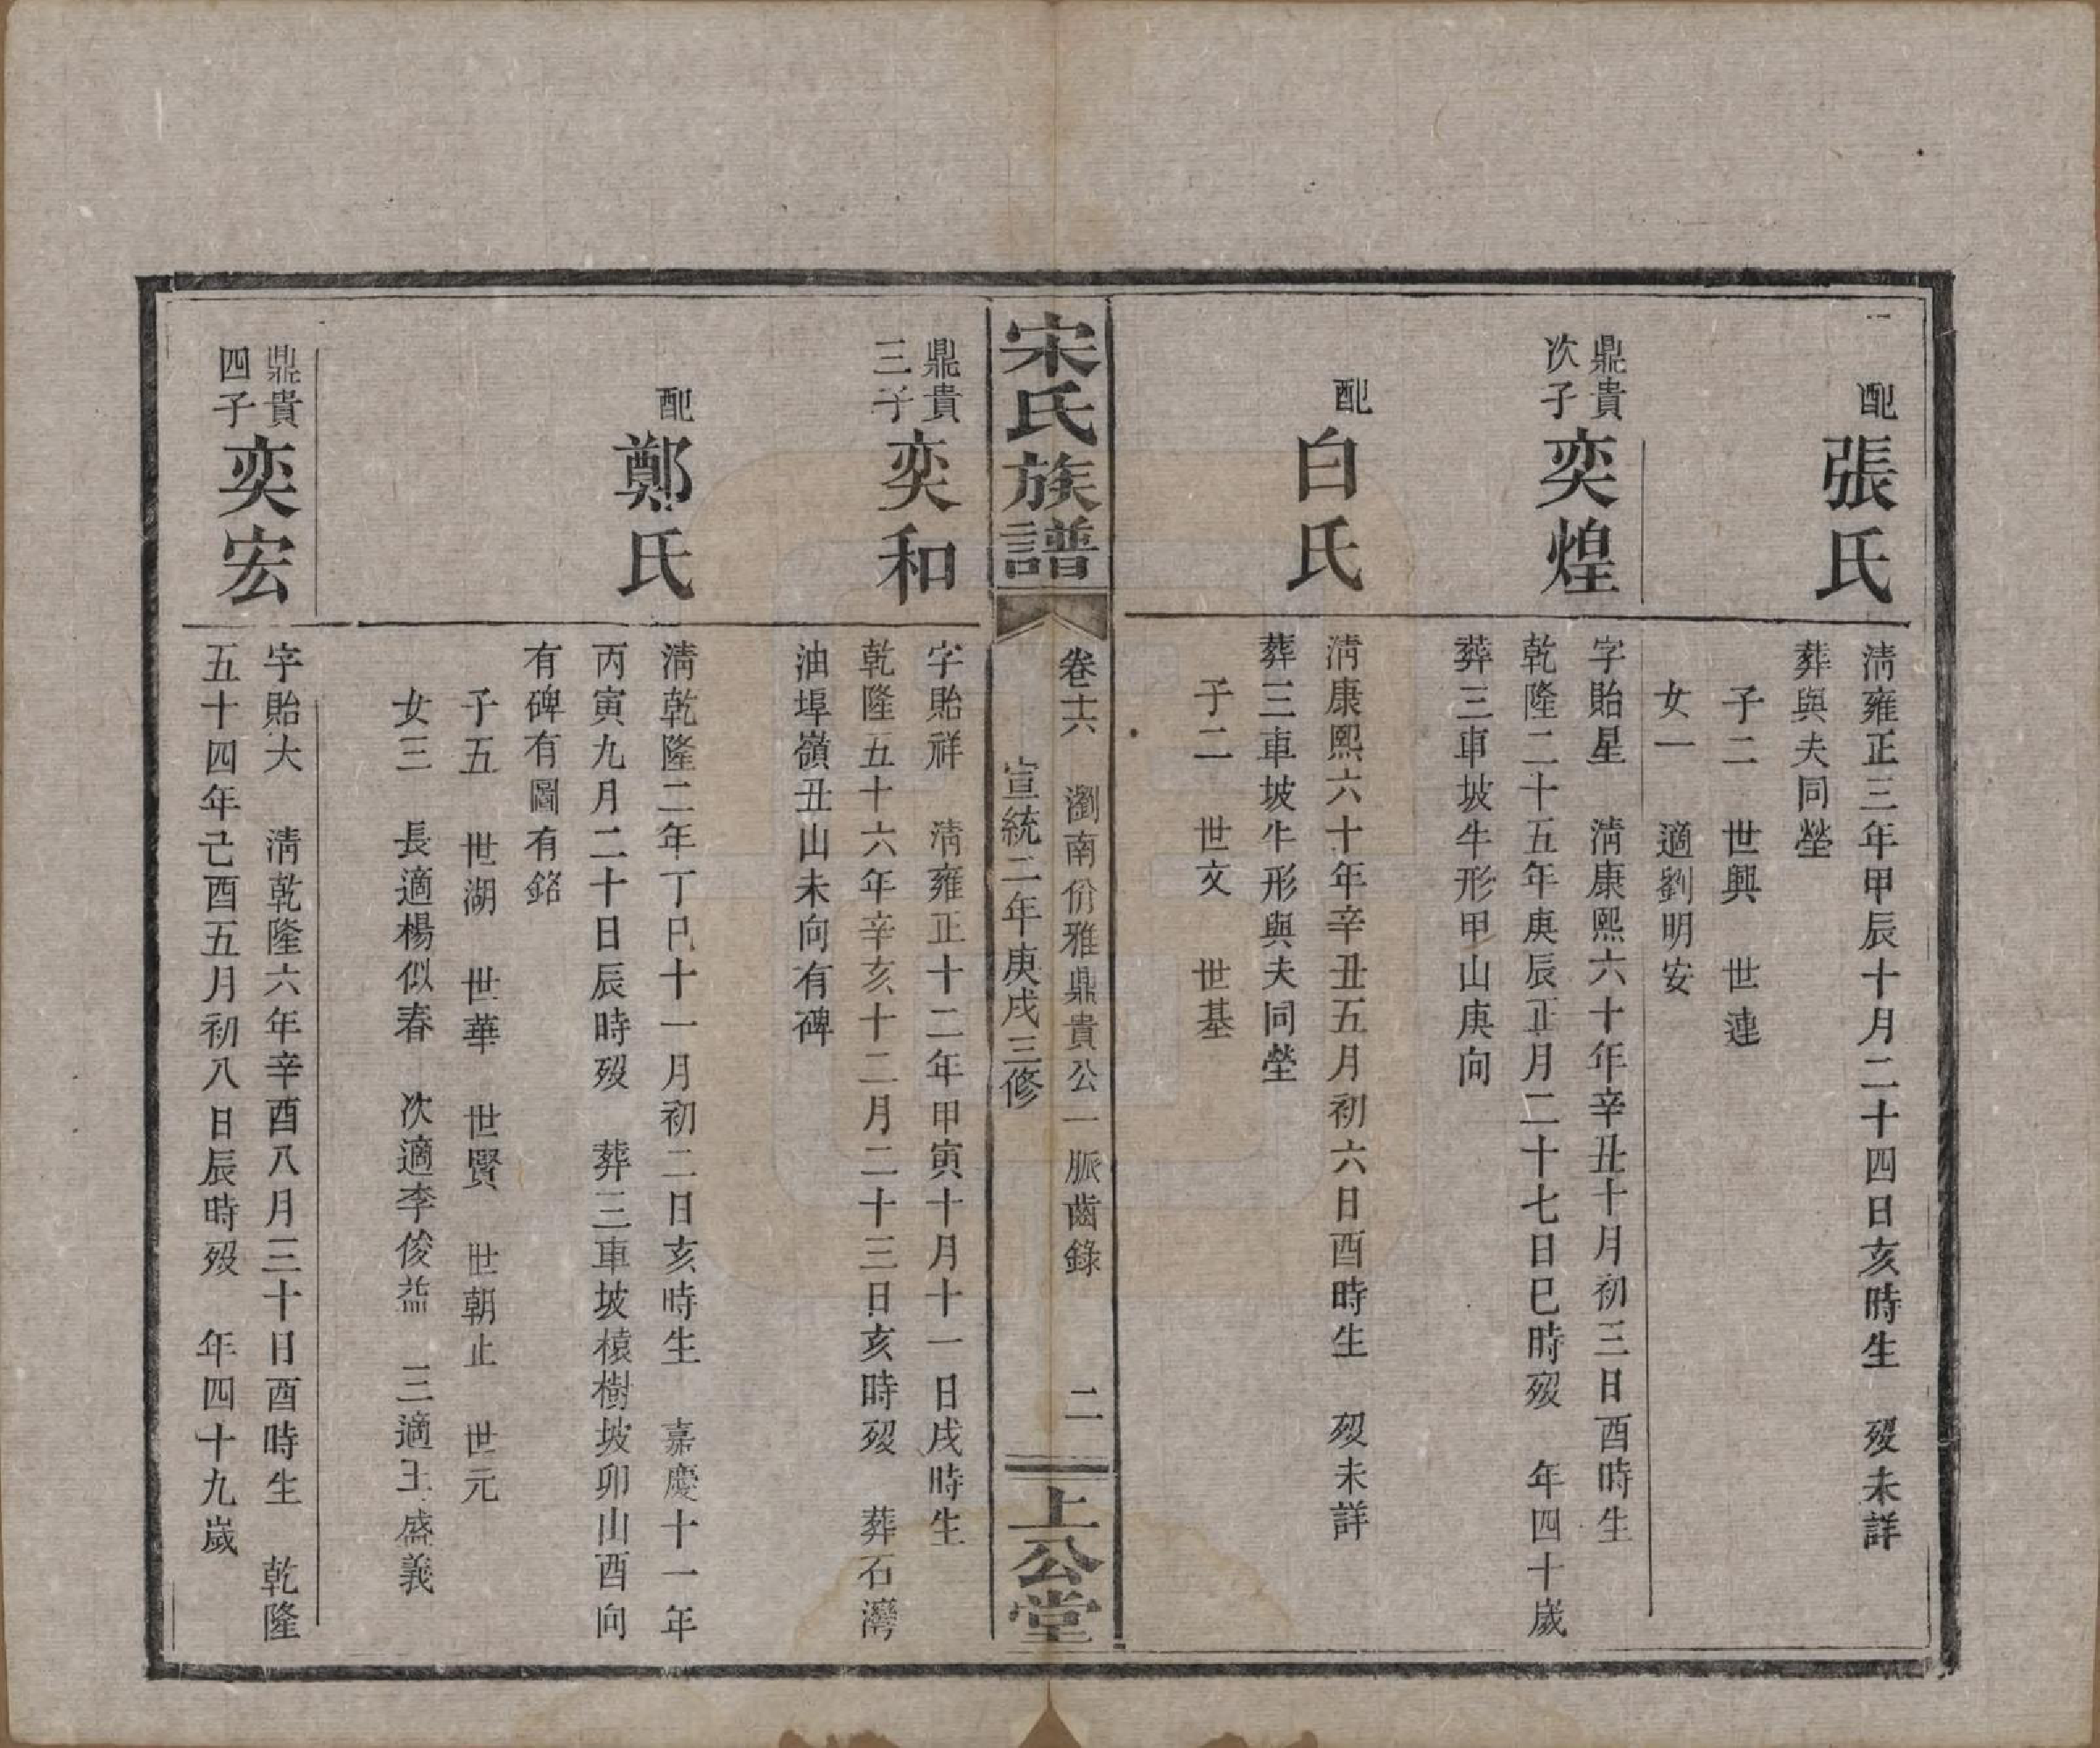 配
張氏
清雍正三年甲辰十月二十四日亥時生　歿未詳
葬與夫同塋
子二　世興　世連
女一　適劉明安
鼎貴
次子
奕煌
字貽星　清康熙六十年辛丑十月初三日酉時生
乾隆二十五年庚辰正月二十七日巳時歿　年四十歲
葬三車坡牛形甲山庚向
配
白氏
清康熙六十年辛丑五月初六日酉時生　歿未詳
葬三車坡牛形與夫同塋
子二　世文　世基
宋氏族譜
卷十六　瀏南份雅鼎貴公一脈齒錄　二
宣統二年庚戌三修
上公堂
鼎貴
三子
奕和
字貽祥　清雍正十二年甲寅十月十一日戌時生
乾隆五十六年辛亥十二月二十三日亥時歿　葬石灣
油埠嶺丑山未向有碑
配
鄭氏
清乾隆二年丁巳十一月初二日亥時生　嘉慶十一年
丙寅九月二十日辰時歿　葬三車坡檺樹坡卯山酉向
有碑有圖有銘
子五　世湖　世華　世賢　世朝止　世元
女三　長適楊似春　次適李俊益　三適王盛義
鼎貴
四子
奕宏
字貽大　清乾隆六年辛酉八月三十日酉時生　乾隆
五十四年己酉五月初八日辰時歿　年四十九歲